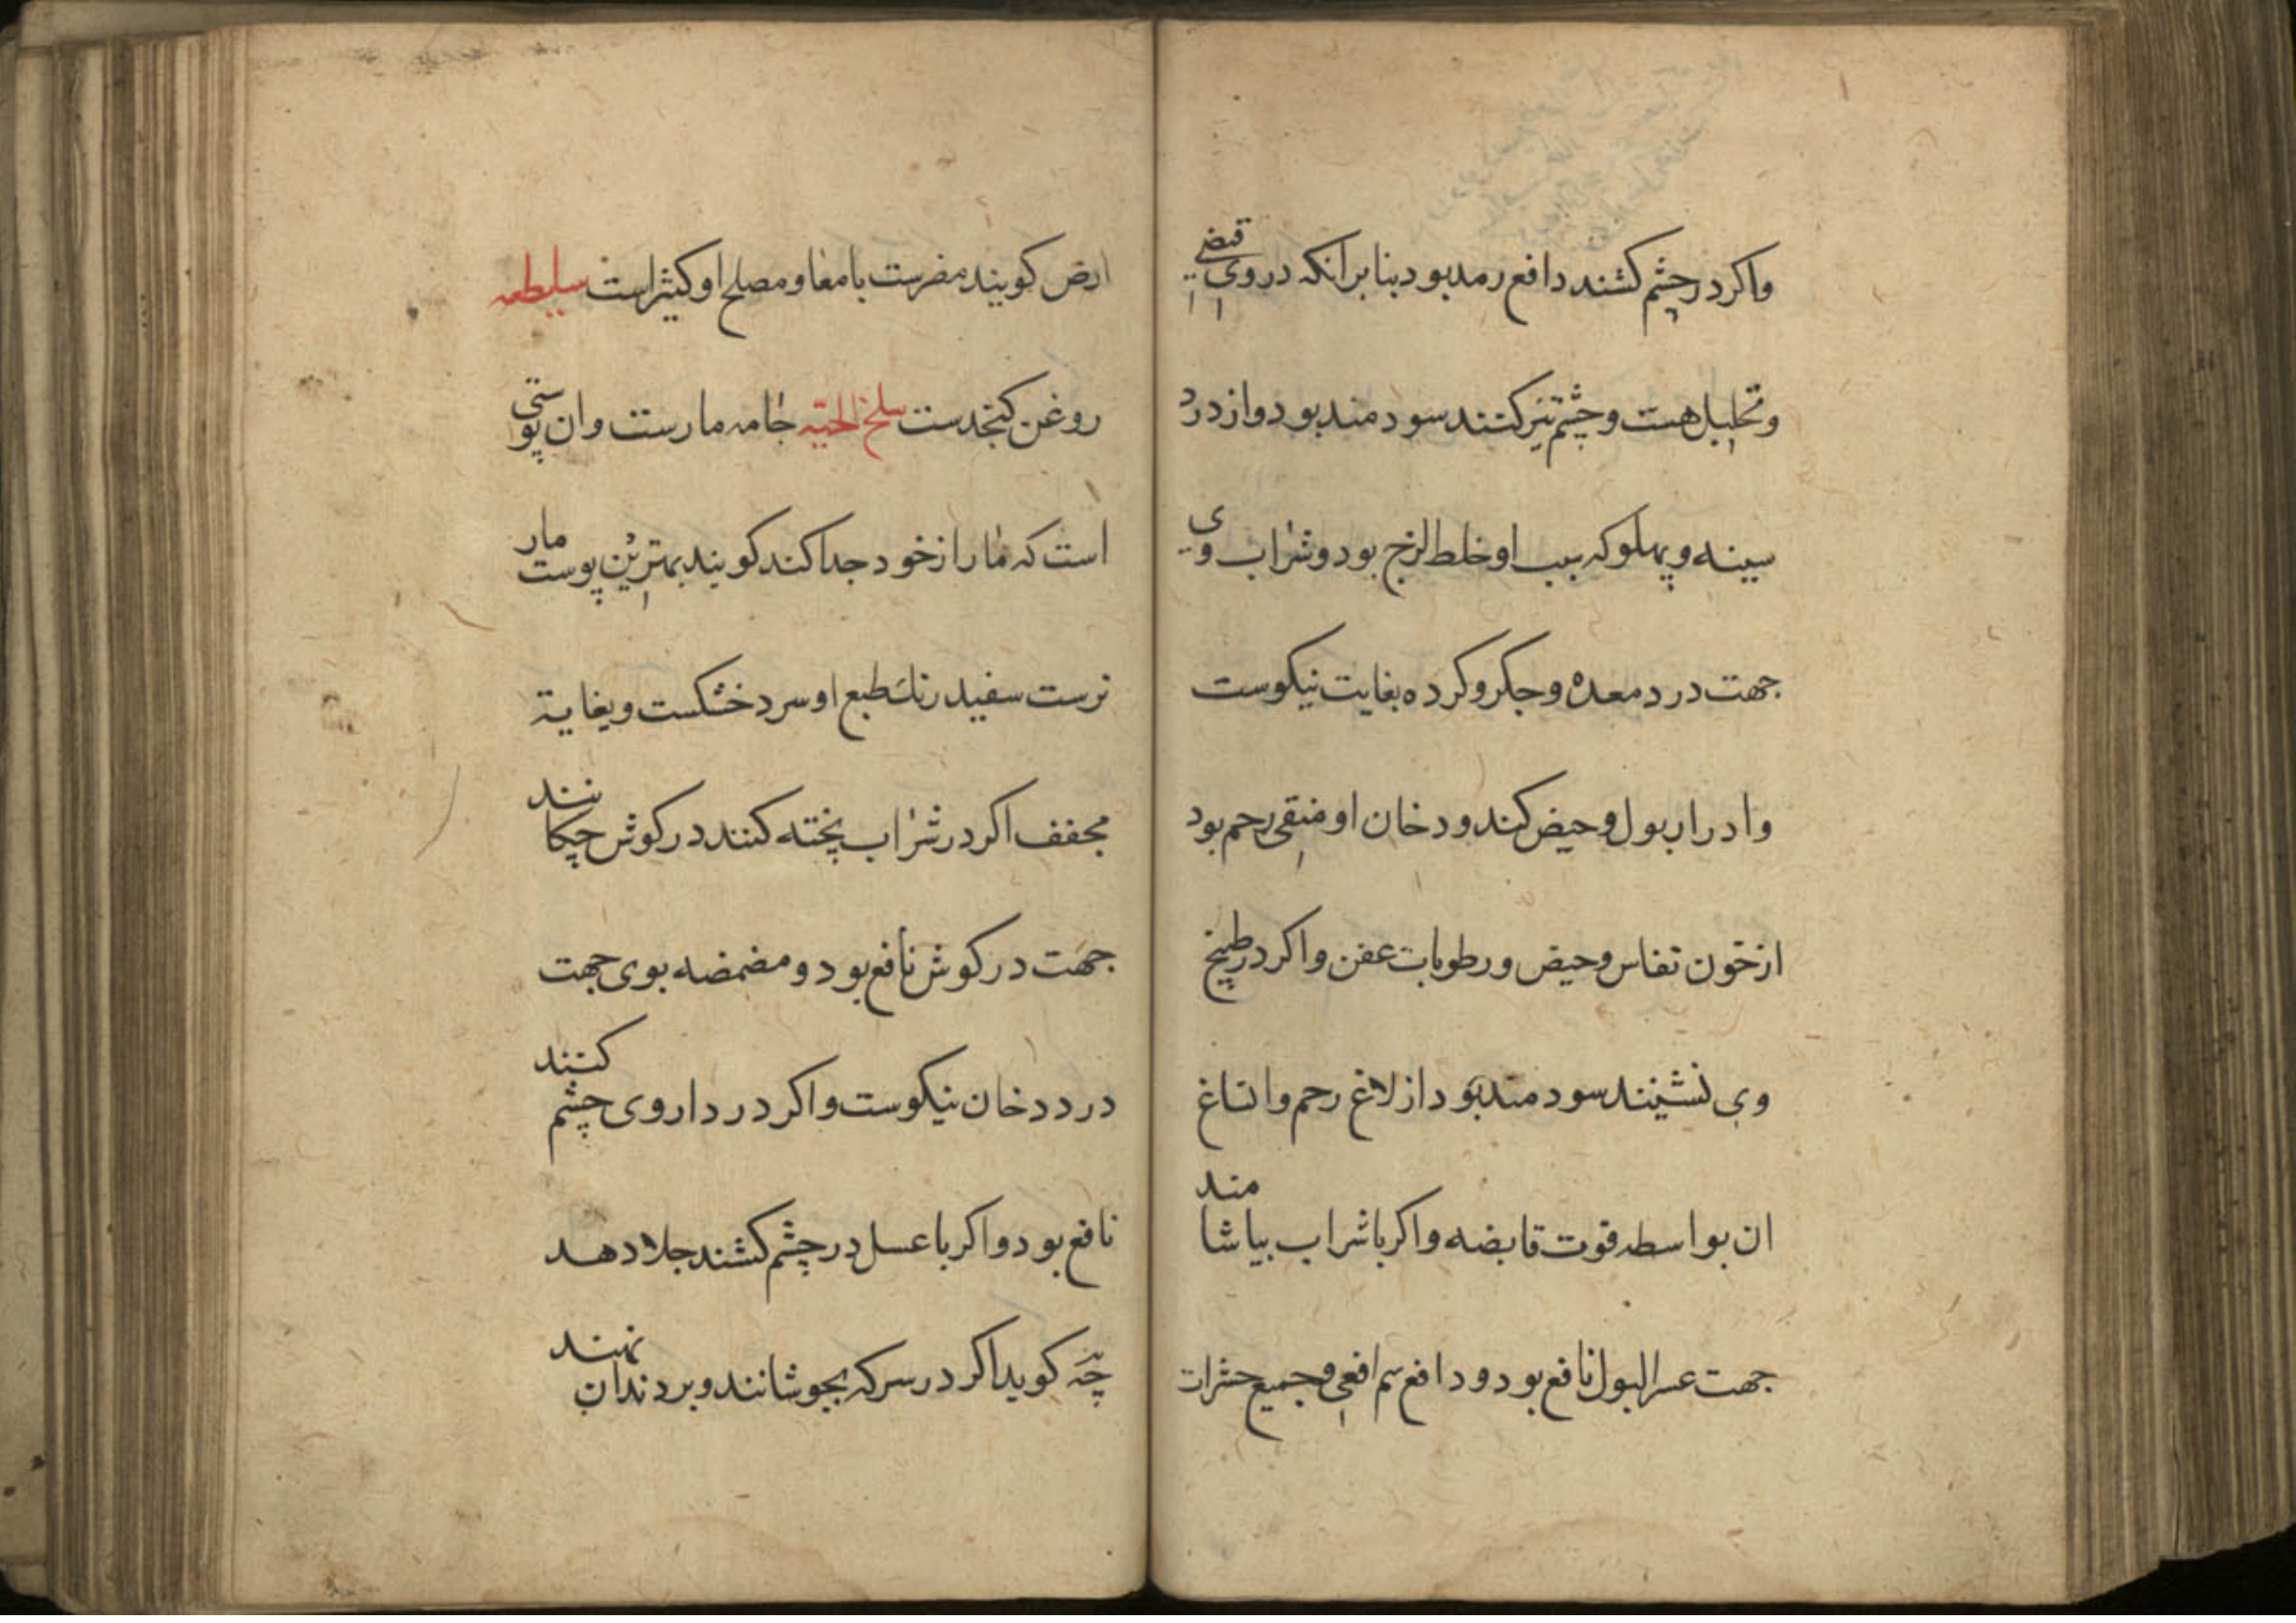 واکر در چشم کشند دافع رمد بود بنا بر انکه در وی قبضی
و تحلیل هست و چشم تیز کنند سودمند بود و از درد
سینه و پهلو که سبب او خلط لزج بود و شراب وی
جهت درد معده و جکر و کرده بغایت نیکوست
و ادرار بول و حیض کند و دخان او منقی رحم بود
از خون نفاس و حیض و رطوبات عفن و اکر در طبیخ
وی نشینند سودمند بود از لاغ رحم و اتساغ
ان بواسطه قوت قابضه و اکر با شراب بیاشامند
جهت عسر البول نافع بود و دافع سم افعی و جمیع حشرات
ارض کویند مضرست بامعا و مصلح او کثیر است سلیطه
روغن کنجدست سلخ الحیّه جامه مارست و ان پوستی
است که مار از خود جدا کند کویند بهترین پوست مار
نرست سفید رنک طبع او سرد خشکست و بغایة
مجفف اکر در شراب پخته کنند در کوش چکانند
جهت در کوش نافع بود و مضمضه بوی جهت
درد دخان نیکوست و اکر در داروی چشم کنند
نافع بود و اکر با عسل در چشم کشند جلا دهد
چه کوید اکر در سرکه بجوشانند و بر دندان نهند